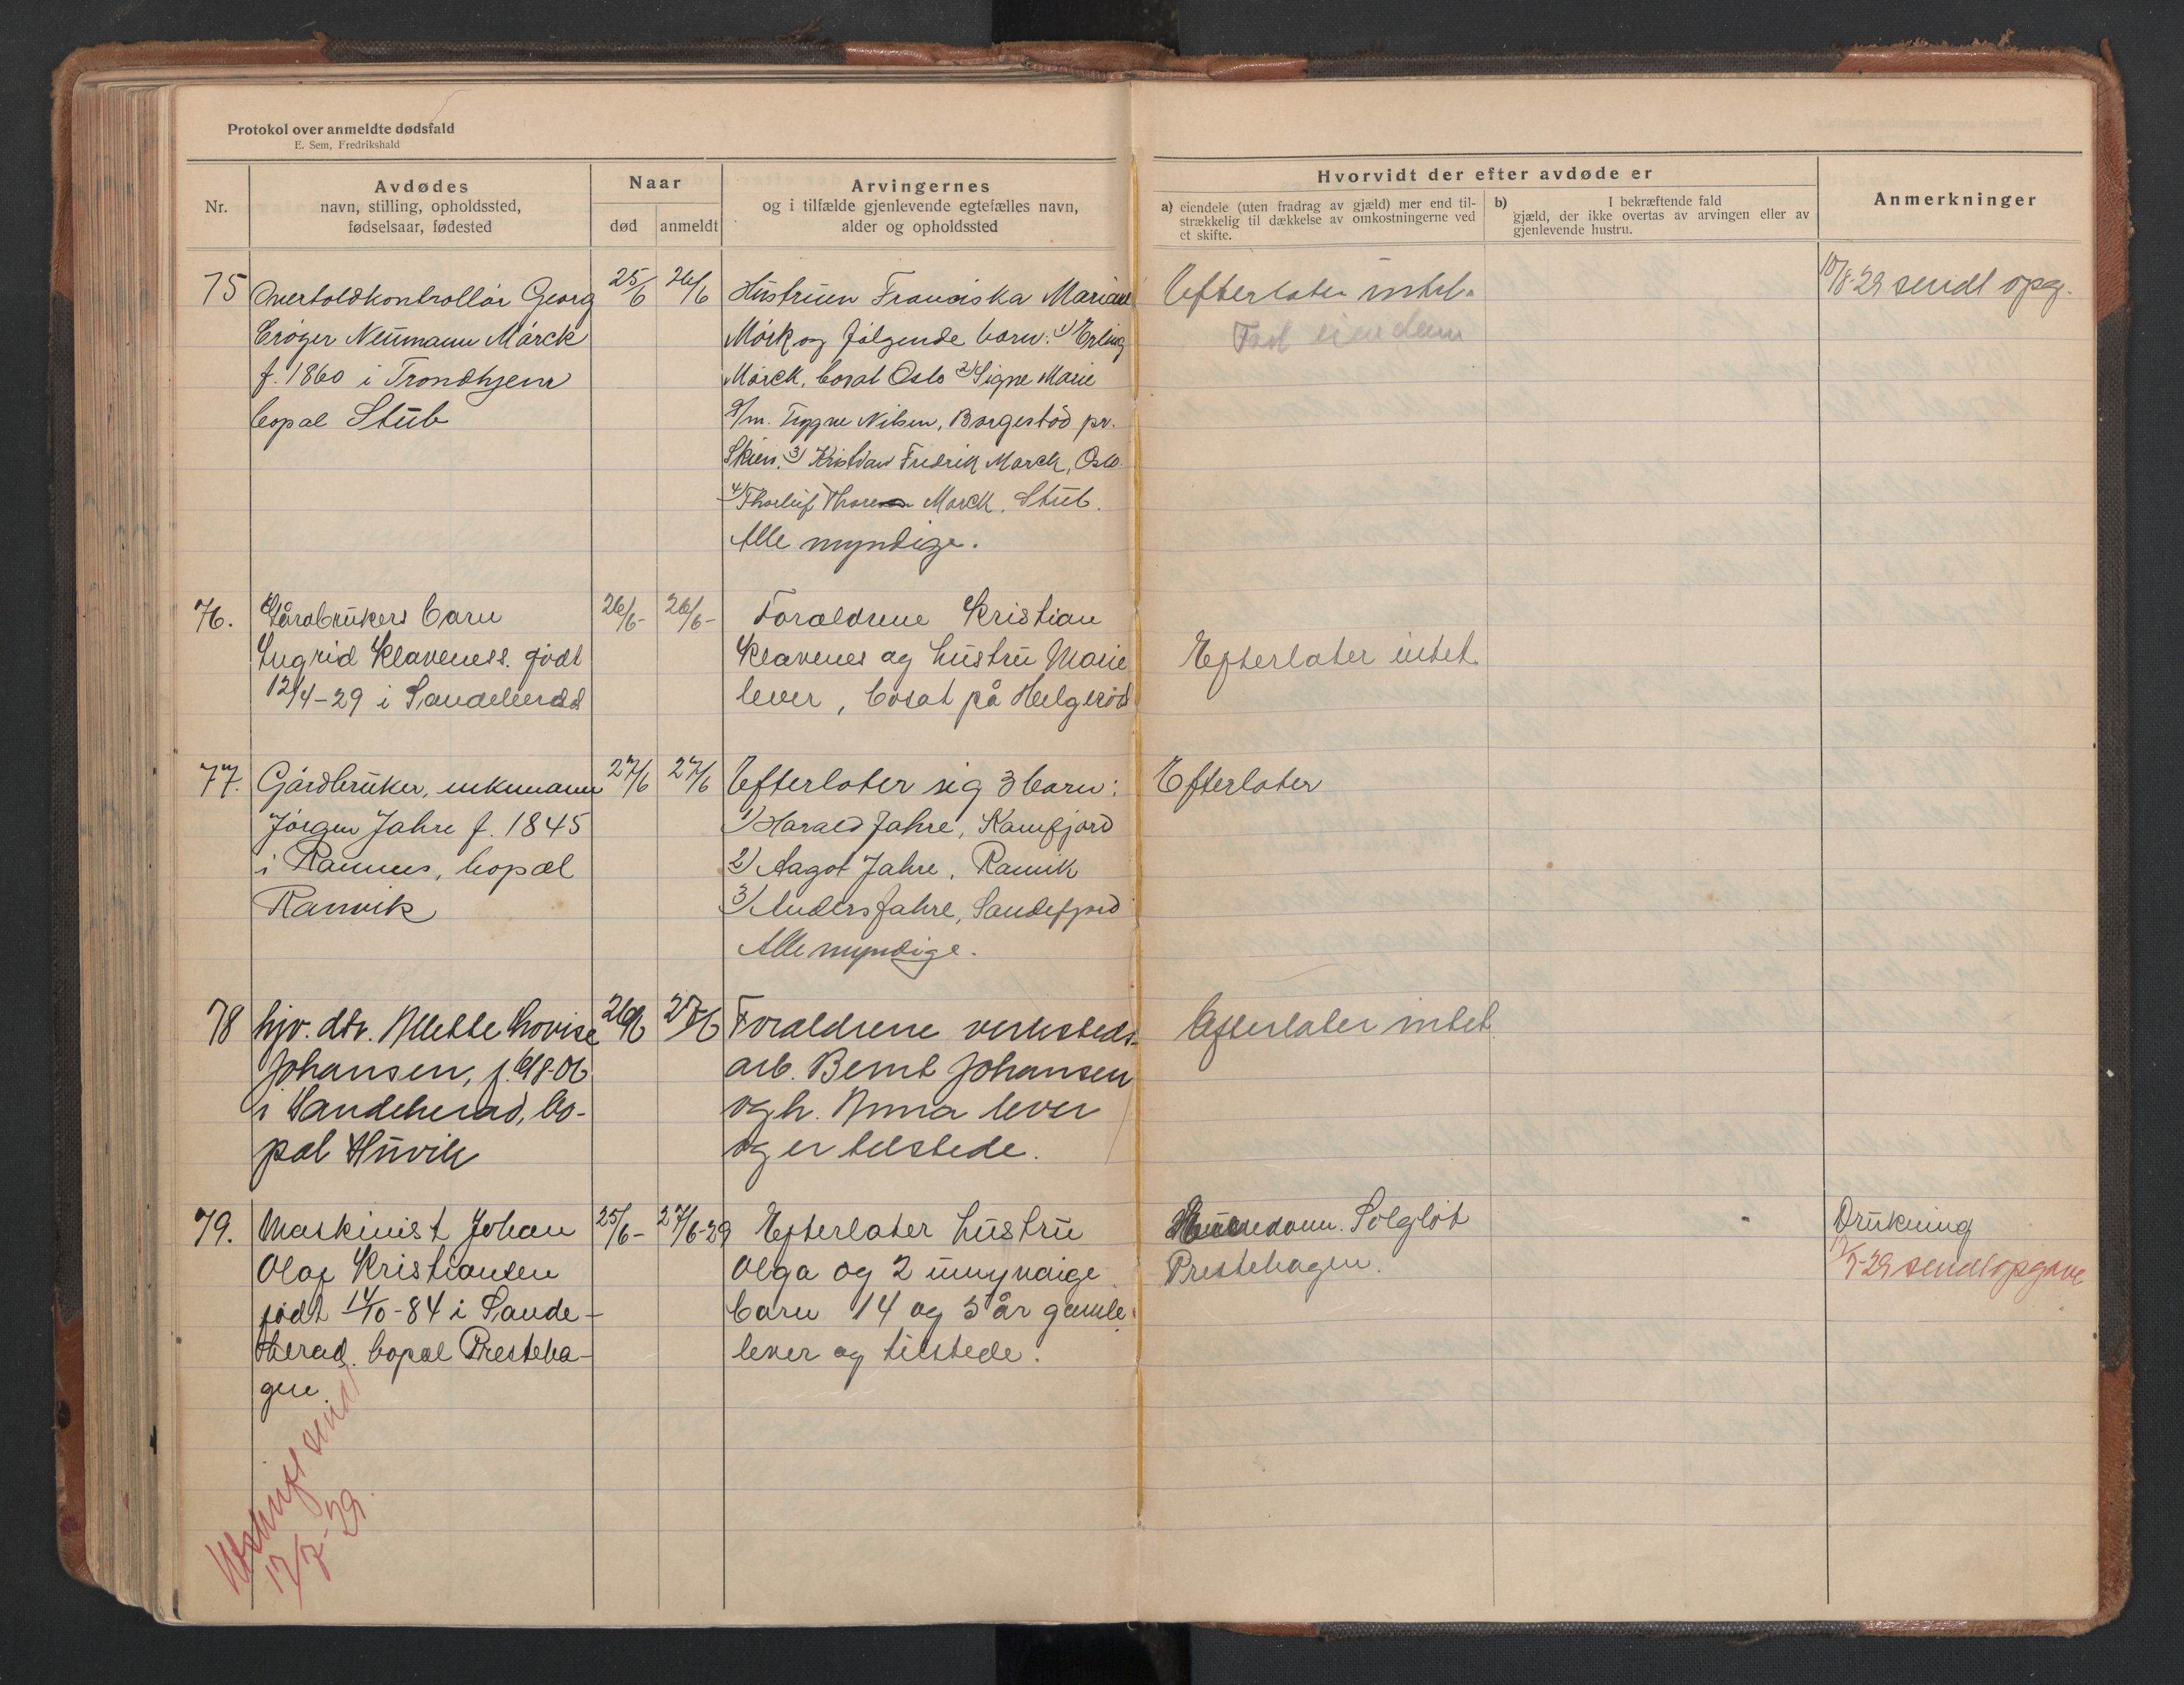 Protokol over anmeldte dødsfald
E. Sem, Fredrikshald
Nr.
Avdødes
navn, stilling, opholdssted,
fødselsaar, fødested
Naar
død
anmeldt
Arvingernes
og i tilfælde gjenlevende egtefælles navn,
alder og opholdssted
Hvorvidt der efter avdøde er
a) eiendele (uten fradrag av gjæld) mer end til-
strækkelig til dækkelse av omkostningerne ved
et skifte.
b) I bekræftende fald
gjæld, der ikke overtas av arvingen eller av
gjenlevende hustru.
Anmerkninger
75
Overtoldkontrollør Georg
Crøger Neumann Mørck
f. 1860 i Trondhjem
bopæl Stub
25/6
26/6
Hustruen Franciska Mariane
Mørk og følgende barn: 1) Erling
Mørck, bosat Oslo 2) Signe Marie
g/m. Trygve Nilsen, Borgestad pr.
Skien, 3) Kristian Fredrik Mørck, Oslo
4) Thorleif Mørck, Stub.
Alle myndige.
Efterlater intet.
Fast eiendom
10/8-29 sendt opg.
76.
Gårdbrukers barn
Ingrid Klaveness. født
12/4-29 i Sandeherad
26/6-
26/6-
Foreldrene Kristian
Klavenes og hustru Marie
lever, bosat på Helgerød
Efterlater intet.
77.
Gårdbruker, enkemann
Jørgen Jahre f. 1845
i Ramnes, bopæl
Ranvik
27/6
27/6
Efterlater sig 3 barn:
1) Harald Jahre, Kamfjord
2) Aagot Jahre, Ranvik
3) Anders Jahre, Sandefjord
Alle myndige.
Efterlater
78
hjv. dtr. Mette Lovise
Johansen, f. 6/8-06
i Sandeherad, bo-
pæl Huvik
26/6
27/6
Foreldrene verksteds-
arb. Bernt Johansen
og h. Anna lever
og er tilstede.
Efterlater intet.
79.
Maskinist Johan
Olaf Kristiansen
født 14/10-84 i Sande-
herad. bopæl Presteha-
gen.
25/6-
27/6-29
Efterlater hustru
Olga og 2 umyndige
barn 14 og 5 år gamle
lever og tilstede.
Huseiendom. Solgløt
Prestehagen.
Drukning
17/7-29 sendt opgave
Utskrift sendt
17/7-29.